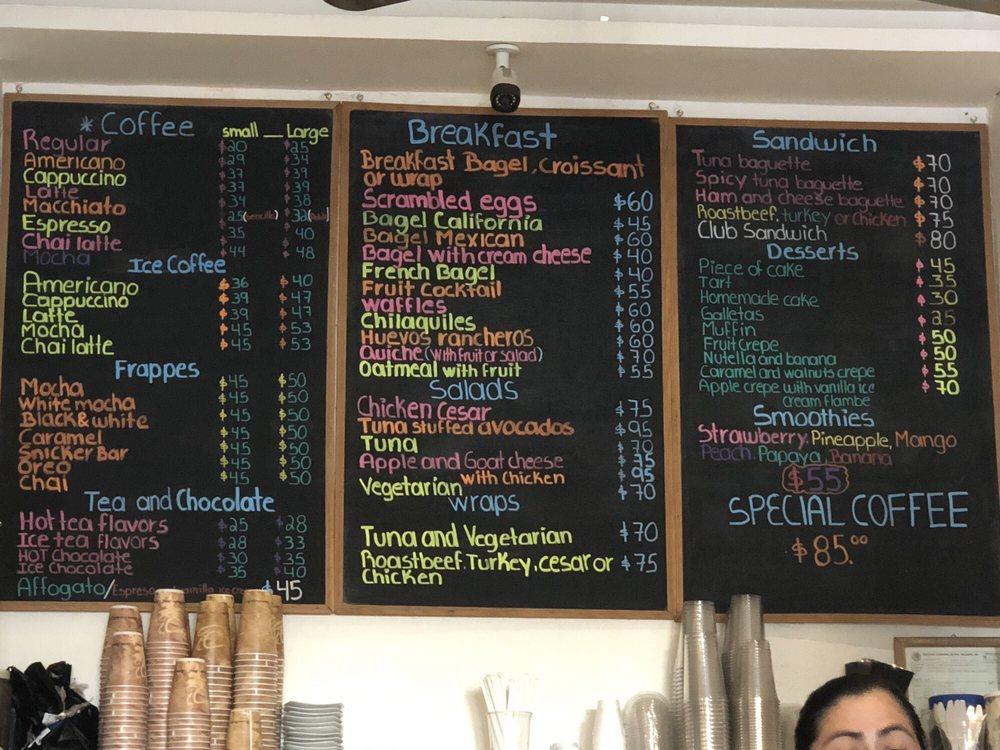 * Coffee small __ Large
Regular $20 $25
Americano $29 $34
Cappuccino $37 $39
Latte $37 $39
Macchiato $34 $38
Espresso $25 (sencillo) $32 (doble)
Chai latte $35 $40
Mocha $44 $48
Ice Coffee
Americano $36 $40
Cappuccino $39 $47
Latte $39 $47
Mocha $45 $53
Chai latte $45 $53
Frappes
Mocha $45 $50
White mocha $45 $50
Black & white $45 $50
Caramel $45 $50
Snicker Bar $45 $50
Oreo $45 $50
Chai $45 $50
Tea and Chocolate
Hot tea flavors $25 $28
Ice tea flavors $28 $33
HOT Chocolate $30 $35
Ice Chocolate $35 $40
Affogato/Espresso $45
Breakfast
Breakfast Bagel, Croissant
or wrap
Scrambled eggs $60
Bagel California $45
Bagel Mexican $60
Bagel with cream cheese $40
French Bagel $40
Fruit Cocktail $55
Waffles $60
Chilaquiles $60
Huevos rancheros $60
Quiche (with fruit or salad) $70
Oatmeal with fruit $55
Salads
Chicken Cesar $75
Tuna stuffed avocados $95
Tuna $70
Apple and Goat cheese $75
with Chicken $95
Vegetarian $70
Wraps
Tuna and Vegetarian $70
Roastbeef, Turkey, cesar or $75
Chicken
Sandwich
Tuna baguette $70
Spicy tuna baguette $70
Ham and cheese baguette $70
Roastbeef, turkey or Chicken $75
Club Sandwich $80
Desserts
Piece of cake $45
Tart $35
Homemade cake $30
Galletas $25
Muffin
Fruit Crepe $50
Nutella and banana $50
Caramel and walnuts crepe $55
Apple crepe with vanilla ice $70
cream flambe
Smoothies
Strawberry, Pineapple, Mango
Peach, Papaya, Banana
$55
SPECIAL COFFEE
$85.00